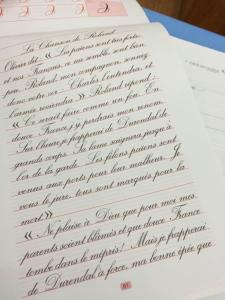 La Chanson de Roland
Olivier dit : « Les païens sont très forts
et nos Français, ce me semble, sont bien
peu. Roland, mon compagnon, sonnez
donc votre cor : Charles l'entendra, et
l'armée reviendra. » Roland répond :
« Ce serait faire comme un fou. En
douce France, j'y perdrais mon renom.
Sur l'heure, je frapperai de Durendal, de
grands coups. Sa lame saignera jusqu'à
l'or de la garde. Les félons païens sont
venus aux ports pour leur malheur. Je
vous le jure, tous sont marqués pour la
mort. »
« Ne plaise à Dieu que pour moi mes
parents soient blâmés et que douce France
tombe dans le mépris ! Mais je frapperai
de Durendal à force, ma bonne épée que